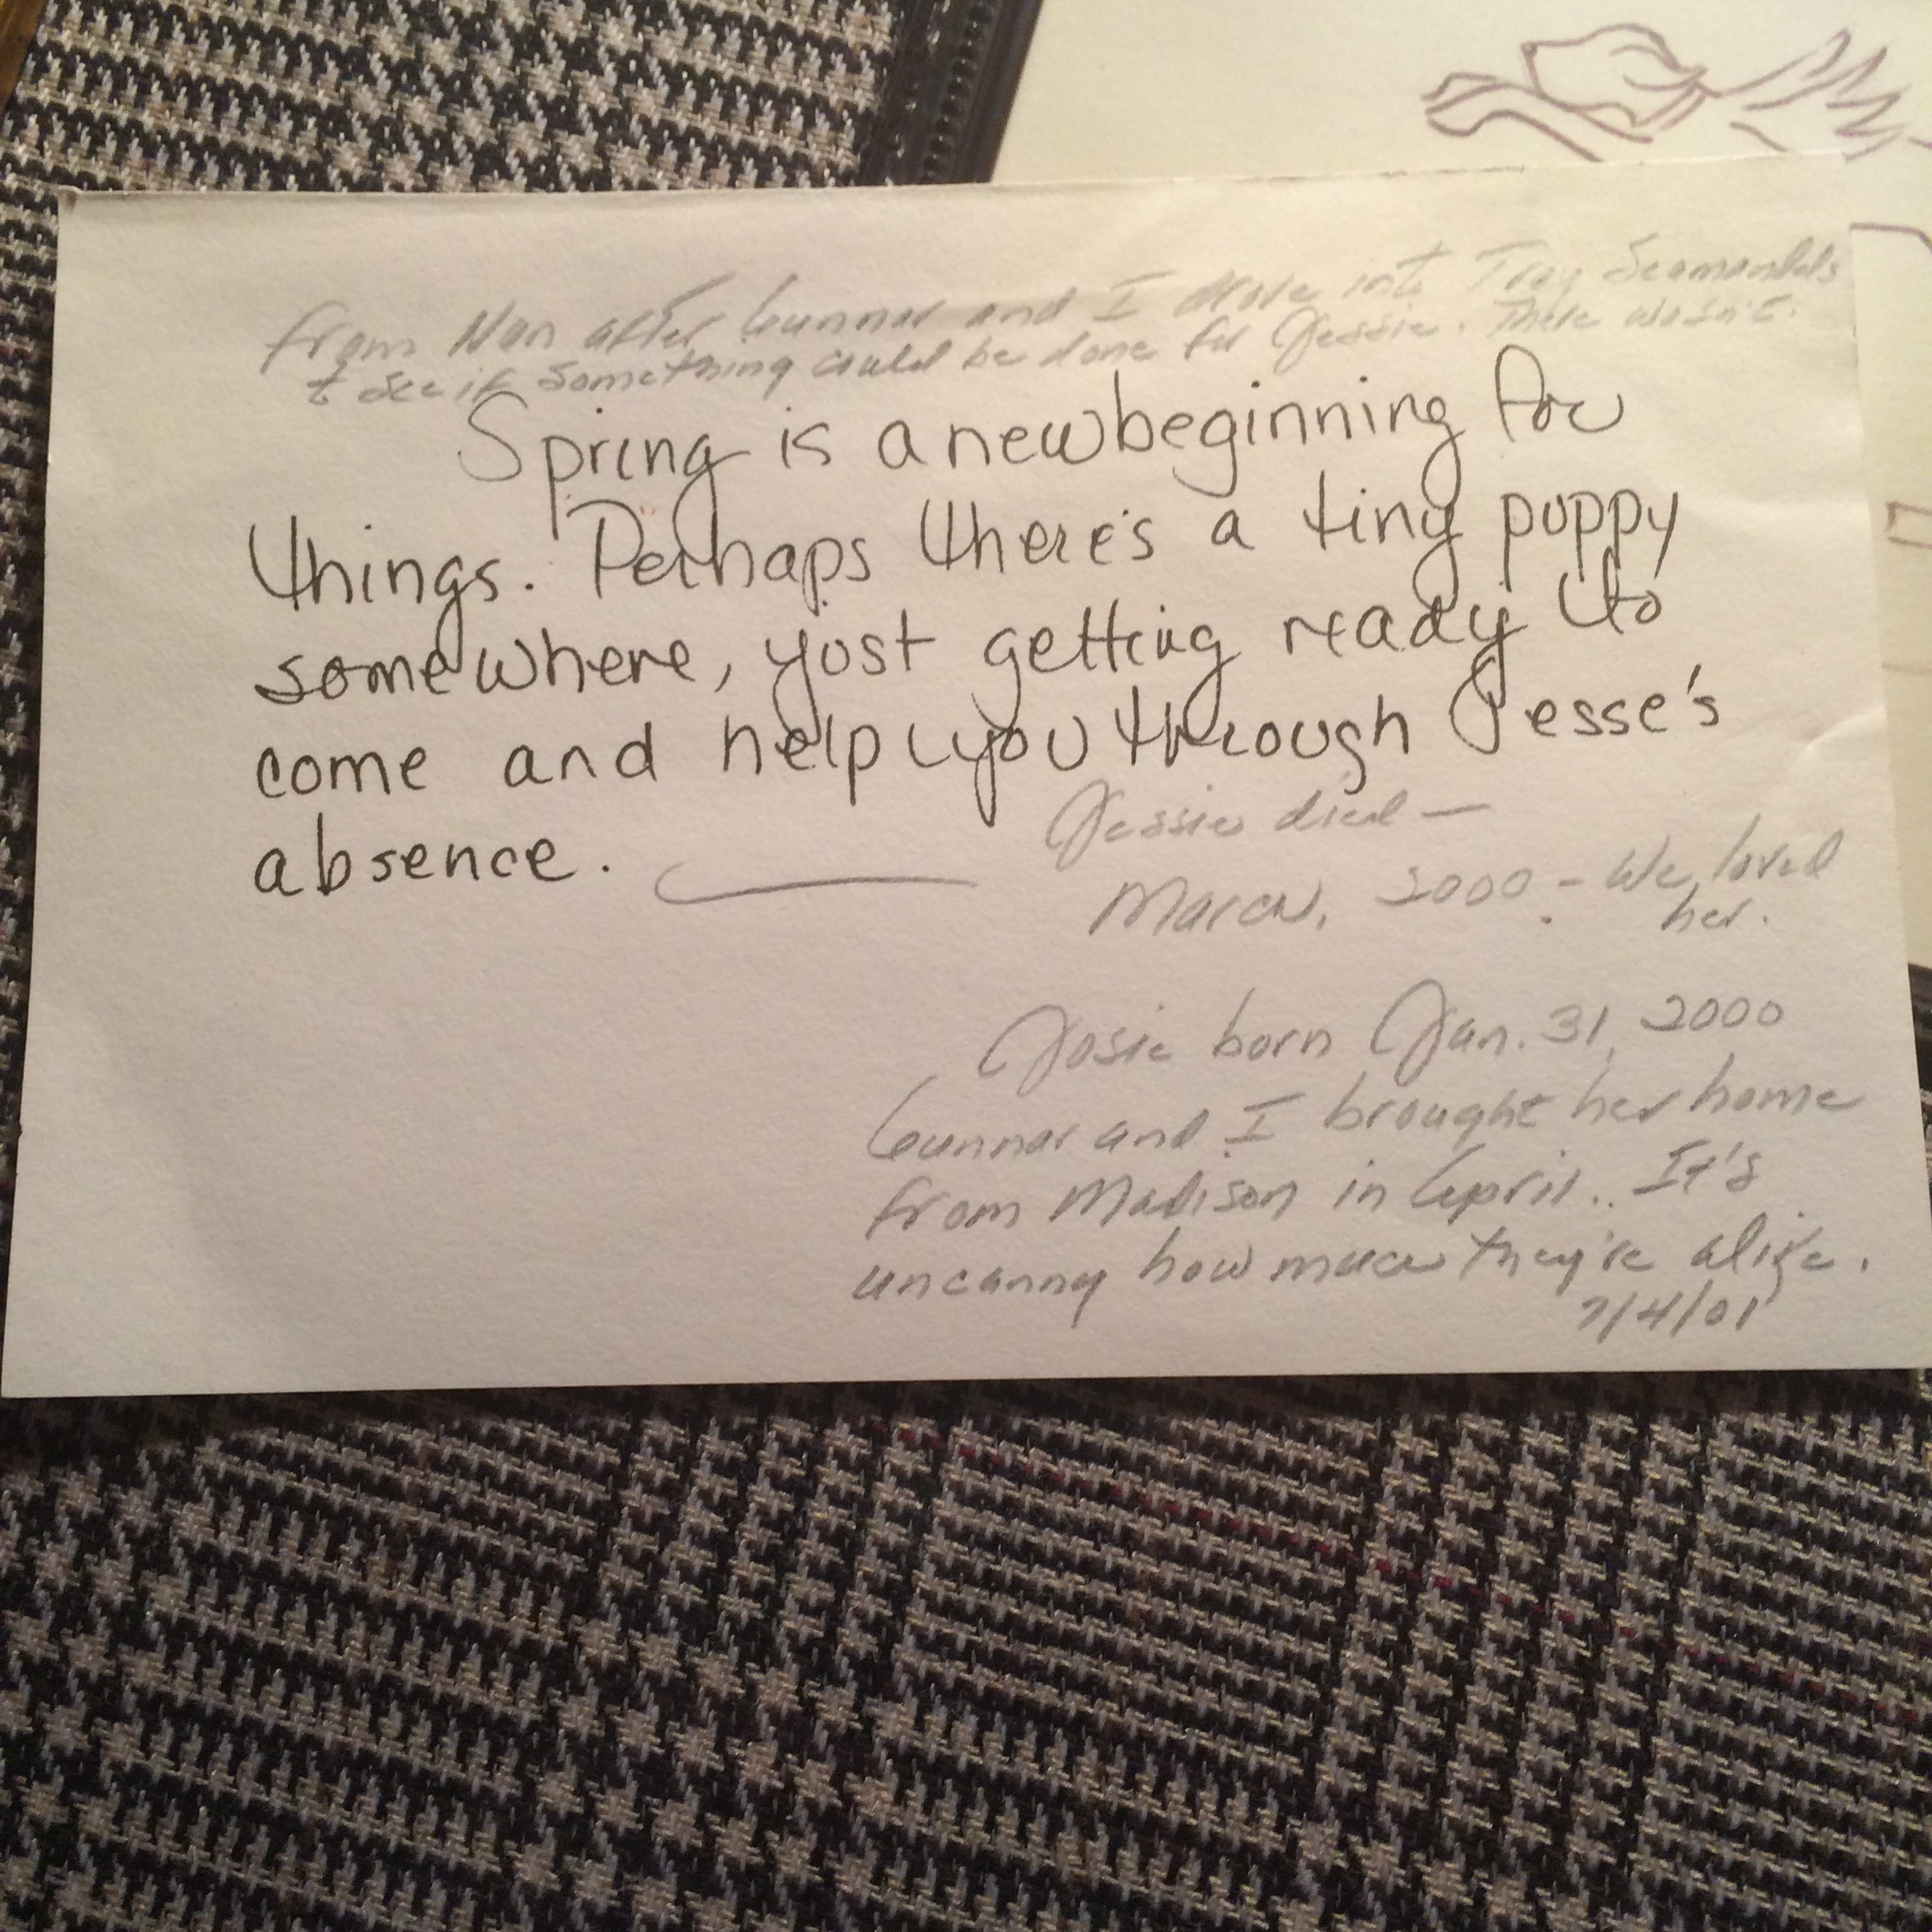 from Nan after Gunnar and I drove into Troy Seamandels
t see if something could be done for Jessie. There wasn't.
Spring is a new beginning for
things. Perhaps there's a tiny puppy
somewhere, just getting ready to
come and help you through Jesse's
absence.
Jessie died —
March, 2000 - We loved
her.
Josie born Jan. 31, 2000
Gunnar and I brought her home
from Madison in April.. It's
uncanny how much they're alike.
7/4/01